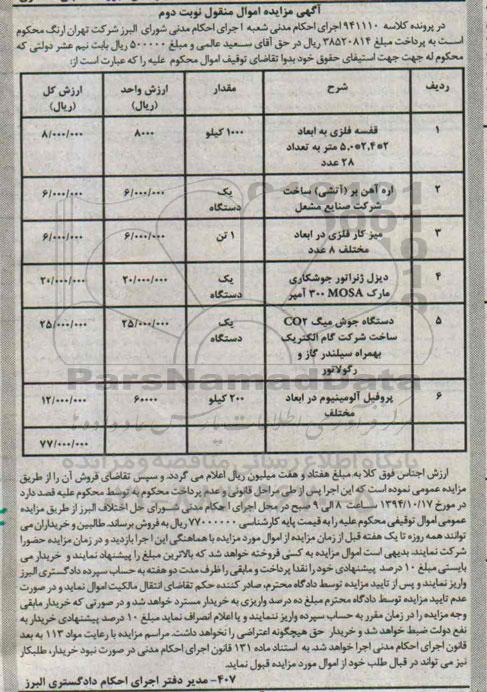 آگهی مزایده اموال منقول نوبت دوم
در پرونده کلاسه ۹۴۱۱۱۰ اجرای احکام مدنی شعبه ۱ اجرای احکام مدنی شورای البرز شرکت تهران ارنگ محکوم
است به پرداخت مبلغ ۳۸۵۲۰۸۱۴ ریال در حق آقای سعید عالمی و مبلغ ۵۰۰۰۰۰ ریال بابت نیم عشر دولتی که
محکوم له جهت جهت استیفای حقوق خود بدوا تقاضای توقیف اموال محکوم علیه را که عبارت است از:
ردیف شرح مقدار ارزش واحد (ریال) ارزش کل (ریال)
۱ قفسه فلزی به ابعاد ۱۰۰۰ کیلو ۸۰۰۰ ۸/۰۰۰/۰۰۰
۲*۲,۴*۵,۰ متر به تعداد
۲۸ عدد
۲ اره آهن بر (آتشی) ساخت یک دستگاه ۶/۰۰۰/۰۰۰ ۶/۰۰۰/۰۰۰
شرکت صنایع مشعل
۳ میز کار فلزی در ابعاد ۱ تن ۶/۰۰۰/۰۰۰ ۶/۰۰۰/۰۰۰
مختلف ۸ عدد
۴ دیزل ژنراتور جوشکاری یک دستگاه ۲۰/۰۰۰/۰۰۰ ۲۰/۰۰۰/۰۰۰
مارک MOSA ۳۰۰ آمپر
۵ دستگاه جوش میگ CO۲ یک دستگاه ۲۵/۰۰۰/۰۰۰ ۲۵/۰۰۰/۰۰۰
ساخت شرکت گام الکتریک
بهمراه سیلندر گاز و
رگولاتور
ParsNamadData
۶ پروفیل آلومینیوم در ابعاد ۲۰۰ کیلو ۶۰۰۰۰ ۱۲/۰۰۰/۰۰۰
مختلف
۷۷/۰۰۰/۰۰۰
پایگاه اطلاع رسانی مناقصه و مزایده
ارزش اجناس فوق کلا به مبلغ هفتاد و هفت میلیون ریال اعلام می گردد. و سپس تقاضای فروش آن را از طریق
مزایده عمومی نموده است که این اجرا پس از طی مراحل قانونی و عدم پرداخت محکوم به توسط محکوم علیه قصد دارد
در مورخ ۱۳۹۴/۱۰/۱۷ ساعت ۸ الی ۹ صبح در محل اجرای احکام مدنی شورای حل اختلاف البرز از طریق مزایده
عمومی اموال توقیفی محکوم علیه را به قیمت پایه کارشناسی ۷۷۰۰۰۰۰۰ ریال به فروش برساند. طالبین و خریداران می
توانند همه روزه تا یک هفته قبل از زمان مزایده از اموال مورد مزایده با هماهنگی این اجرا بازدید و در زمان مزایده حضورا
شرکت نمایند. بدیهی است اموال مزایده به کسی فروخته خواهد شد که بالاترین مبلغ را پیشنهاد نمایند و خریدار می
بایستی مبلغ ۱۰ درصد پیشنهادی خود را نقدا پرداخت و مابقی را ظرف مدت دو هفته به حساب سپرده دادگستری البرز
واریز نمایند و پس از تایید مزایده توسط دادگاه محترم، صادر کننده حکم تقاضای انتقال مالکیت اموال نماید و در صورت
عدم تایید مزایده توسط دادگاه محترم مبلغ ده درصد واریزی به خریدار مسترد خواهد شد و در صورتی که خریدار مابقی
وجه مزایده را در زمان مقرر به حساب سپرده واریز ننمایند و یا اعلام انصراف نماید مبلغ ۱۰ درصد پیشنهادی خریدار به
نفع دولت ضبط خواهد شد و خریدار حق هیچگونه اعتراضی را نخواهد داشت. مراسم مزایده با رعایت مواد ۱۱۳ به بعد
قانون اجرای احکام مدنی اجرا خواهد شد. به استناد ماده ۱۳۱ قانون اجرای احکام مدنی در صورت نبود خریدار، طلبکار
نیز می تواند در قبال طلب خود از اموال مورد مزایده قبول نماید.
۴۰۷- مدیر دفتر اجرای احکام دادگستری البرز